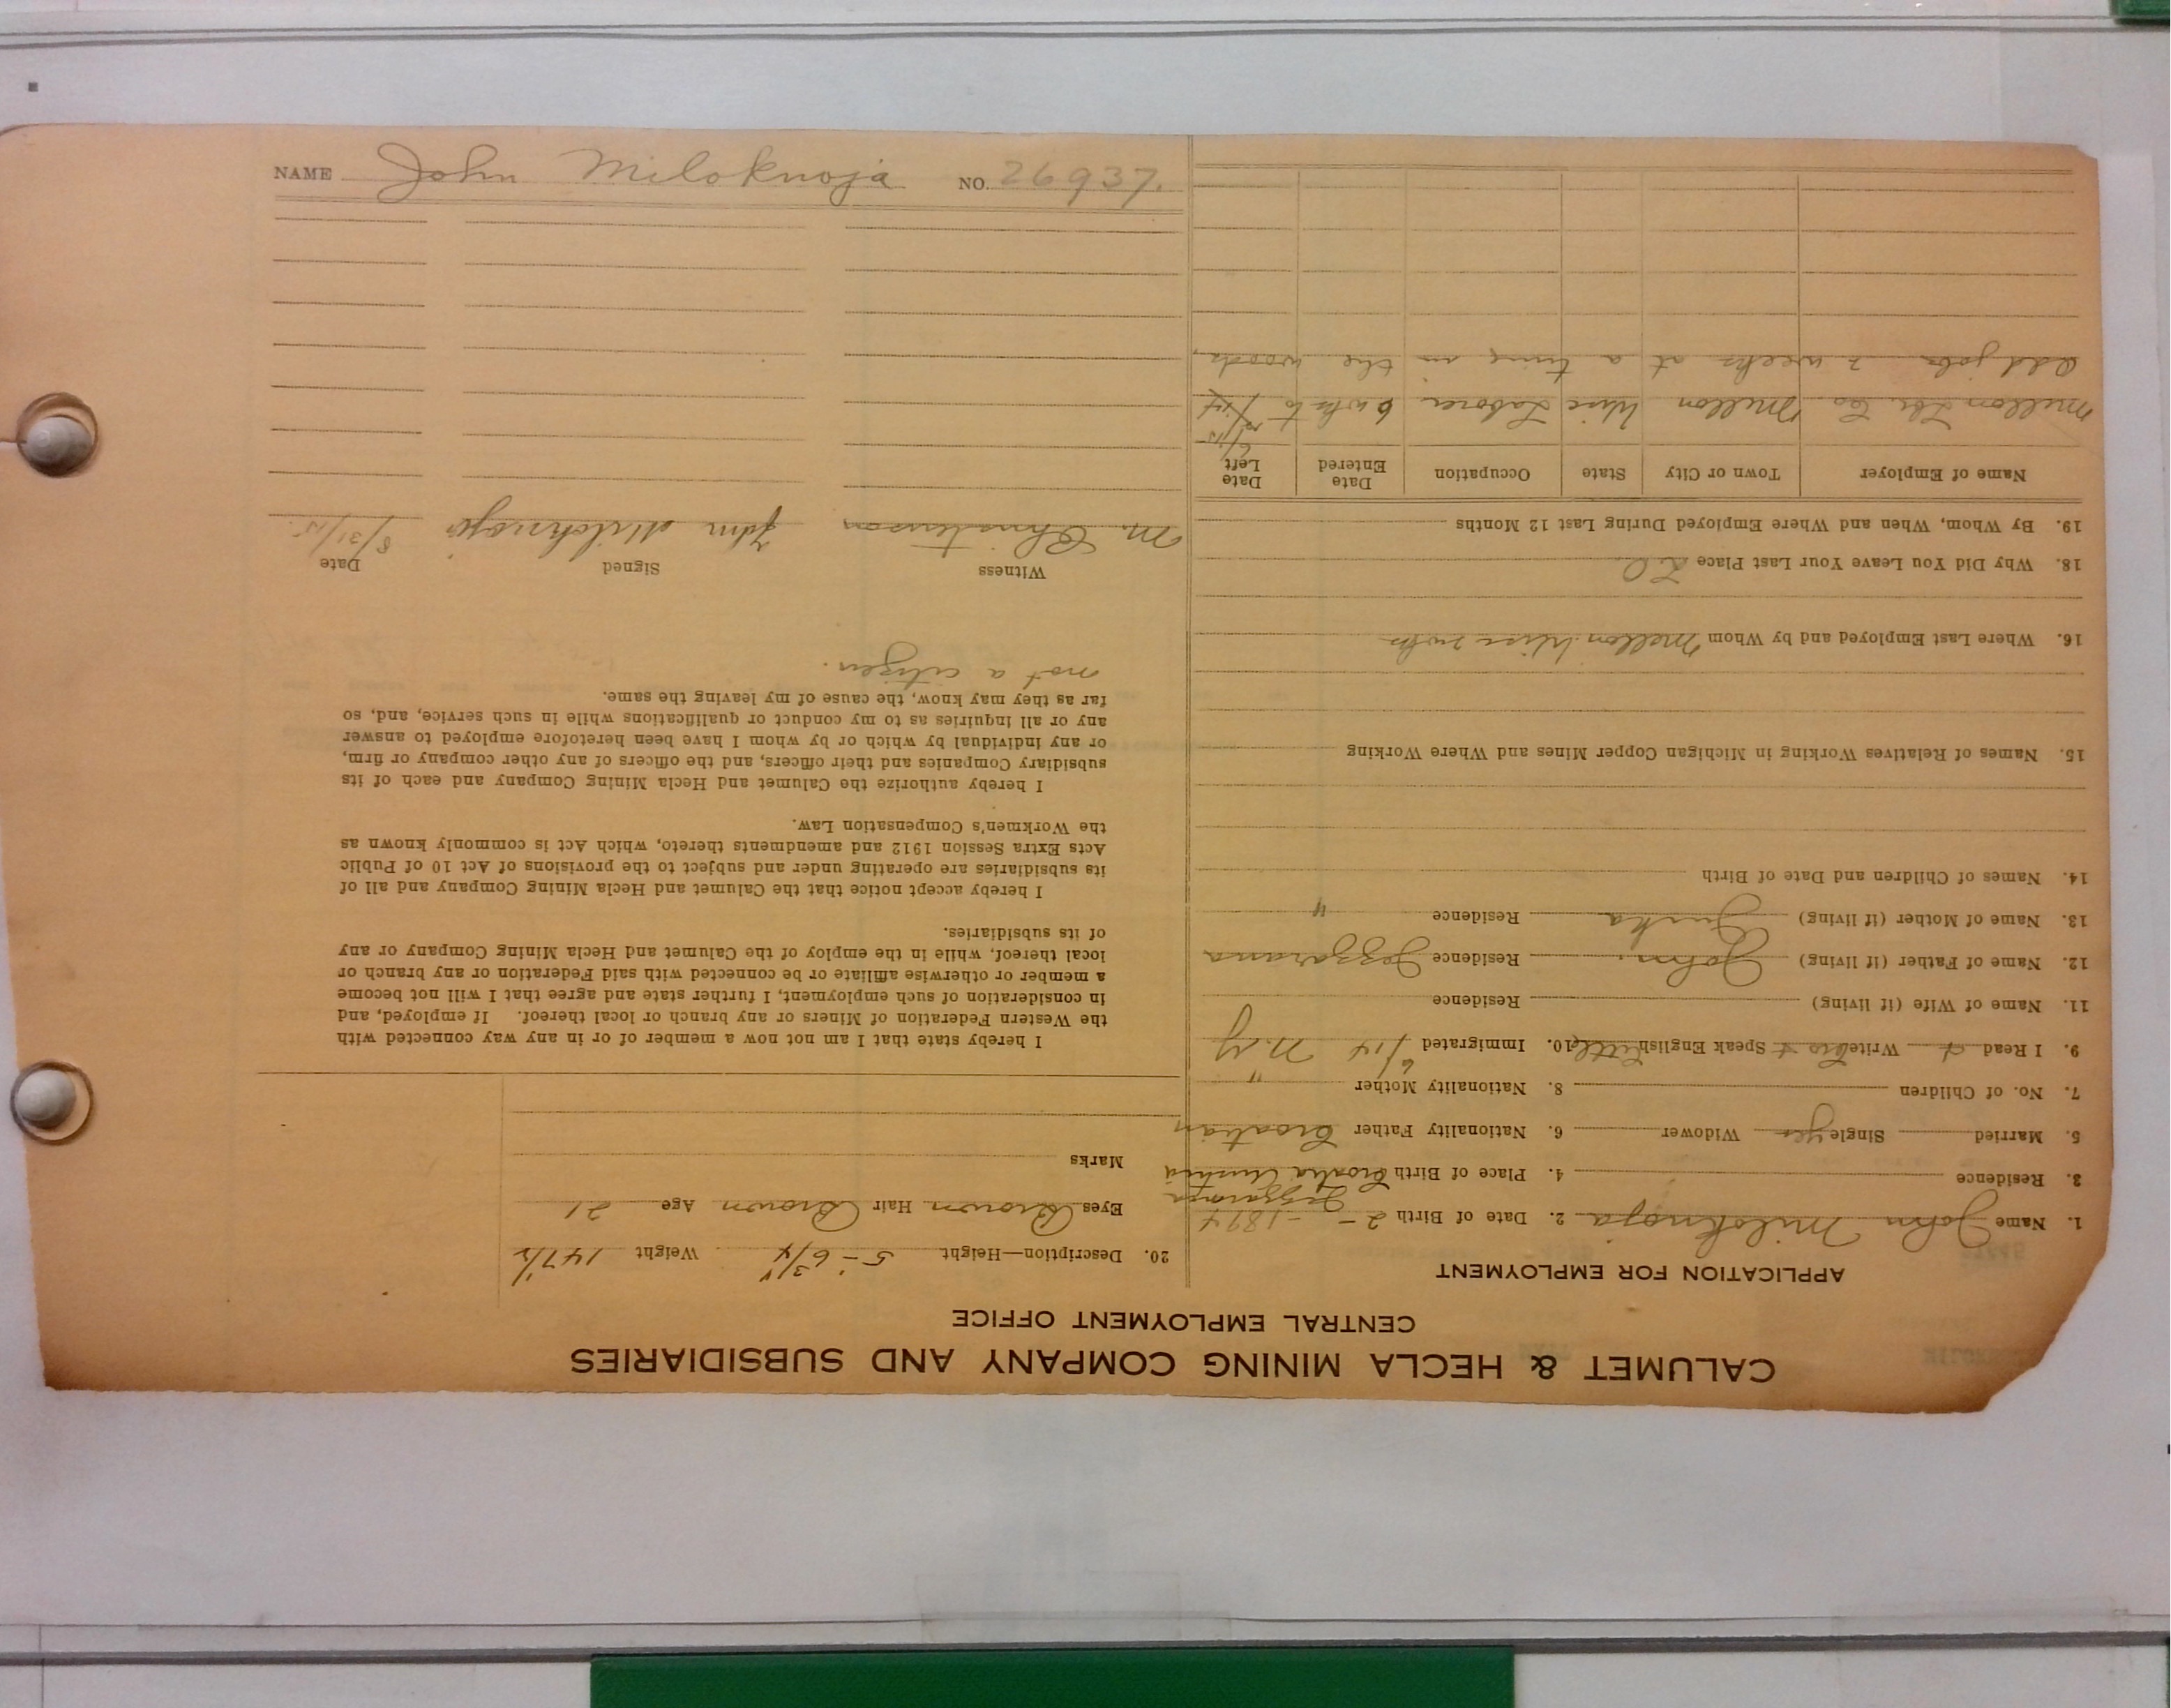 NAME John Miloknoja NO. 26937.
CALUMET & HECLA MINING COMPANY AND SUBSIDIARIES
CENTRAL EMPLOYMENT OFFICE
APPLICATION FOR EMPLOYMENT
1. Name John Miloknoja 2. Date of Birth 2 - - 1894
3. Residence 4. Place of Birth Croatia Austria
5. Married Single yes Widower 6. Nationality Father Croatian
7. No. of Children 8. Nationality Mother "
9. I Read Write Speak English Little 10. Immigrated 6/14 N.Y
11. Name of Wife (if living) Residence
12. Name of Father (if living) John Residence
13. Name of Mother (if living) Residence "
14. Names of Children and Date of Birth
15. Names of Relatives Working in Michigan Copper Mines and Where Working
16. Where Last Employed and by Whom Mellon Wisc
18. Why Did You Leave Your Last Place
19. By Whom, When and Where Employed During Last 12 Months
Name of Employer Town or City State Occupation Date Entered Date Left
Mellon Lbr. Co Mellon Wisc Laborer 6 wks to
Odd jobs 2 weeks at a time in the woods.
20. Description—Height 5 - 6 3/4 Weight 147 1/2
Eyes Brown Hair Brown Age 21
Marks
I hereby state that I am not now a member of or in any way connected with
the Western Federation of Miners or any branch or local thereof. If employed, and
in consideration of such employment, I further state and agree that I will not become
a member or otherwise affiliate or be connected with said Federation or any branch or
local thereof, while in the employ of the Calumet and Hecla Mining Company or any
of its subsidiaries.
I hereby accept notice that the Calumet and Hecla Mining Company and all of
its subsidiaries are operating under and subject to the provisions of Act 10 of Public
Acts Extra Session 1912 and amendments thereto, which Act is commonly known as
the Workmen's Compensation Law.
I hereby authorize the Calumet and Hecla Mining Company and each of its
subsidiary Companies and their officers, and the officers of any other company or firm,
or any individual by which or by whom I have been heretofore employed to answer
any or all inquiries as to my conduct or qualifications while in such service, and, so
far as they may know, the cause of my leaving the same.
not a citizen.
Witness Signed Date
M. Christenson John Miloknoja 8/31/15.